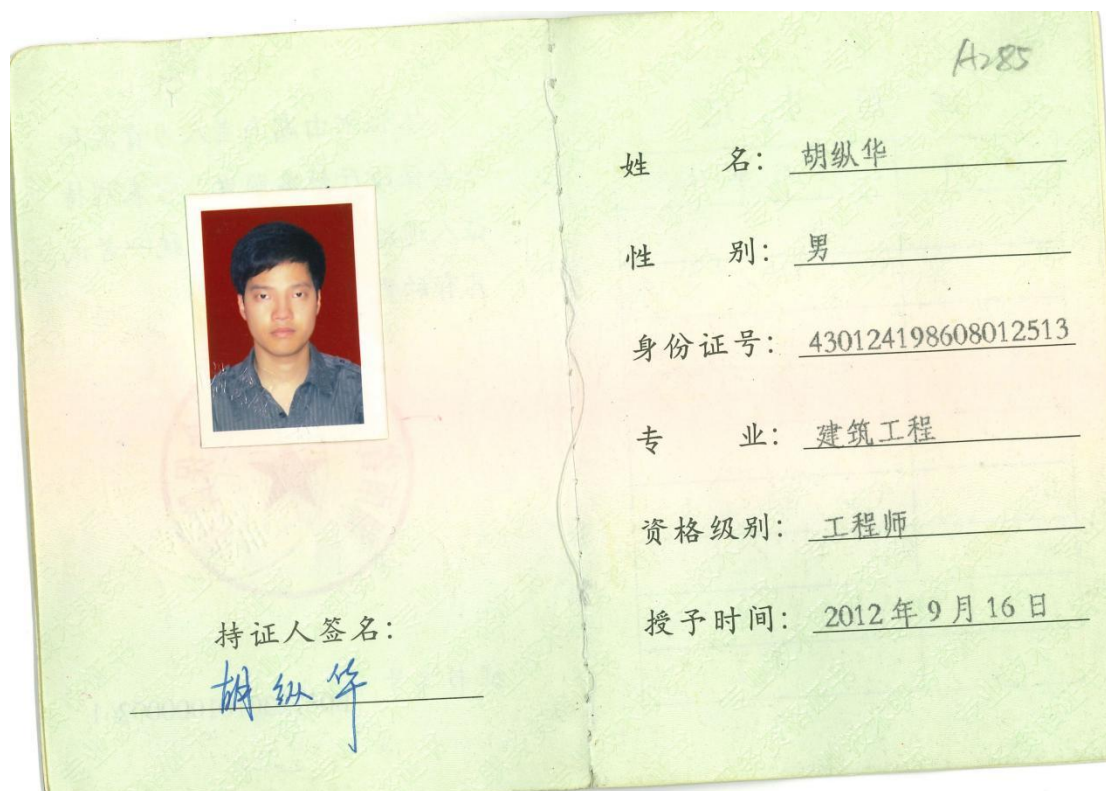 持证人签名:
胡纵华
A285
姓 名: 胡纵华
性 别: 男
身份证号: 430124198608012513
专 业: 建筑工程
资格级别: 工程师
授予时间: 2012年9月16日